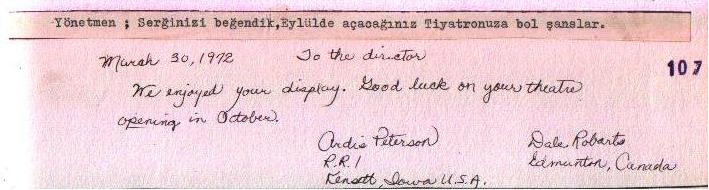 Yönetmen ; Serginizi beğendik,Eylülde açacağınız Tiyatronuza bol şanslar.
March 30, 1972 To the director
107
We enjoyed your display. Good luck on your theatre
opening in October.
Ardis Peterson Dale Robarts
R.R.1 Edmunton, Canada
Kensett, Iowa U.S.A.